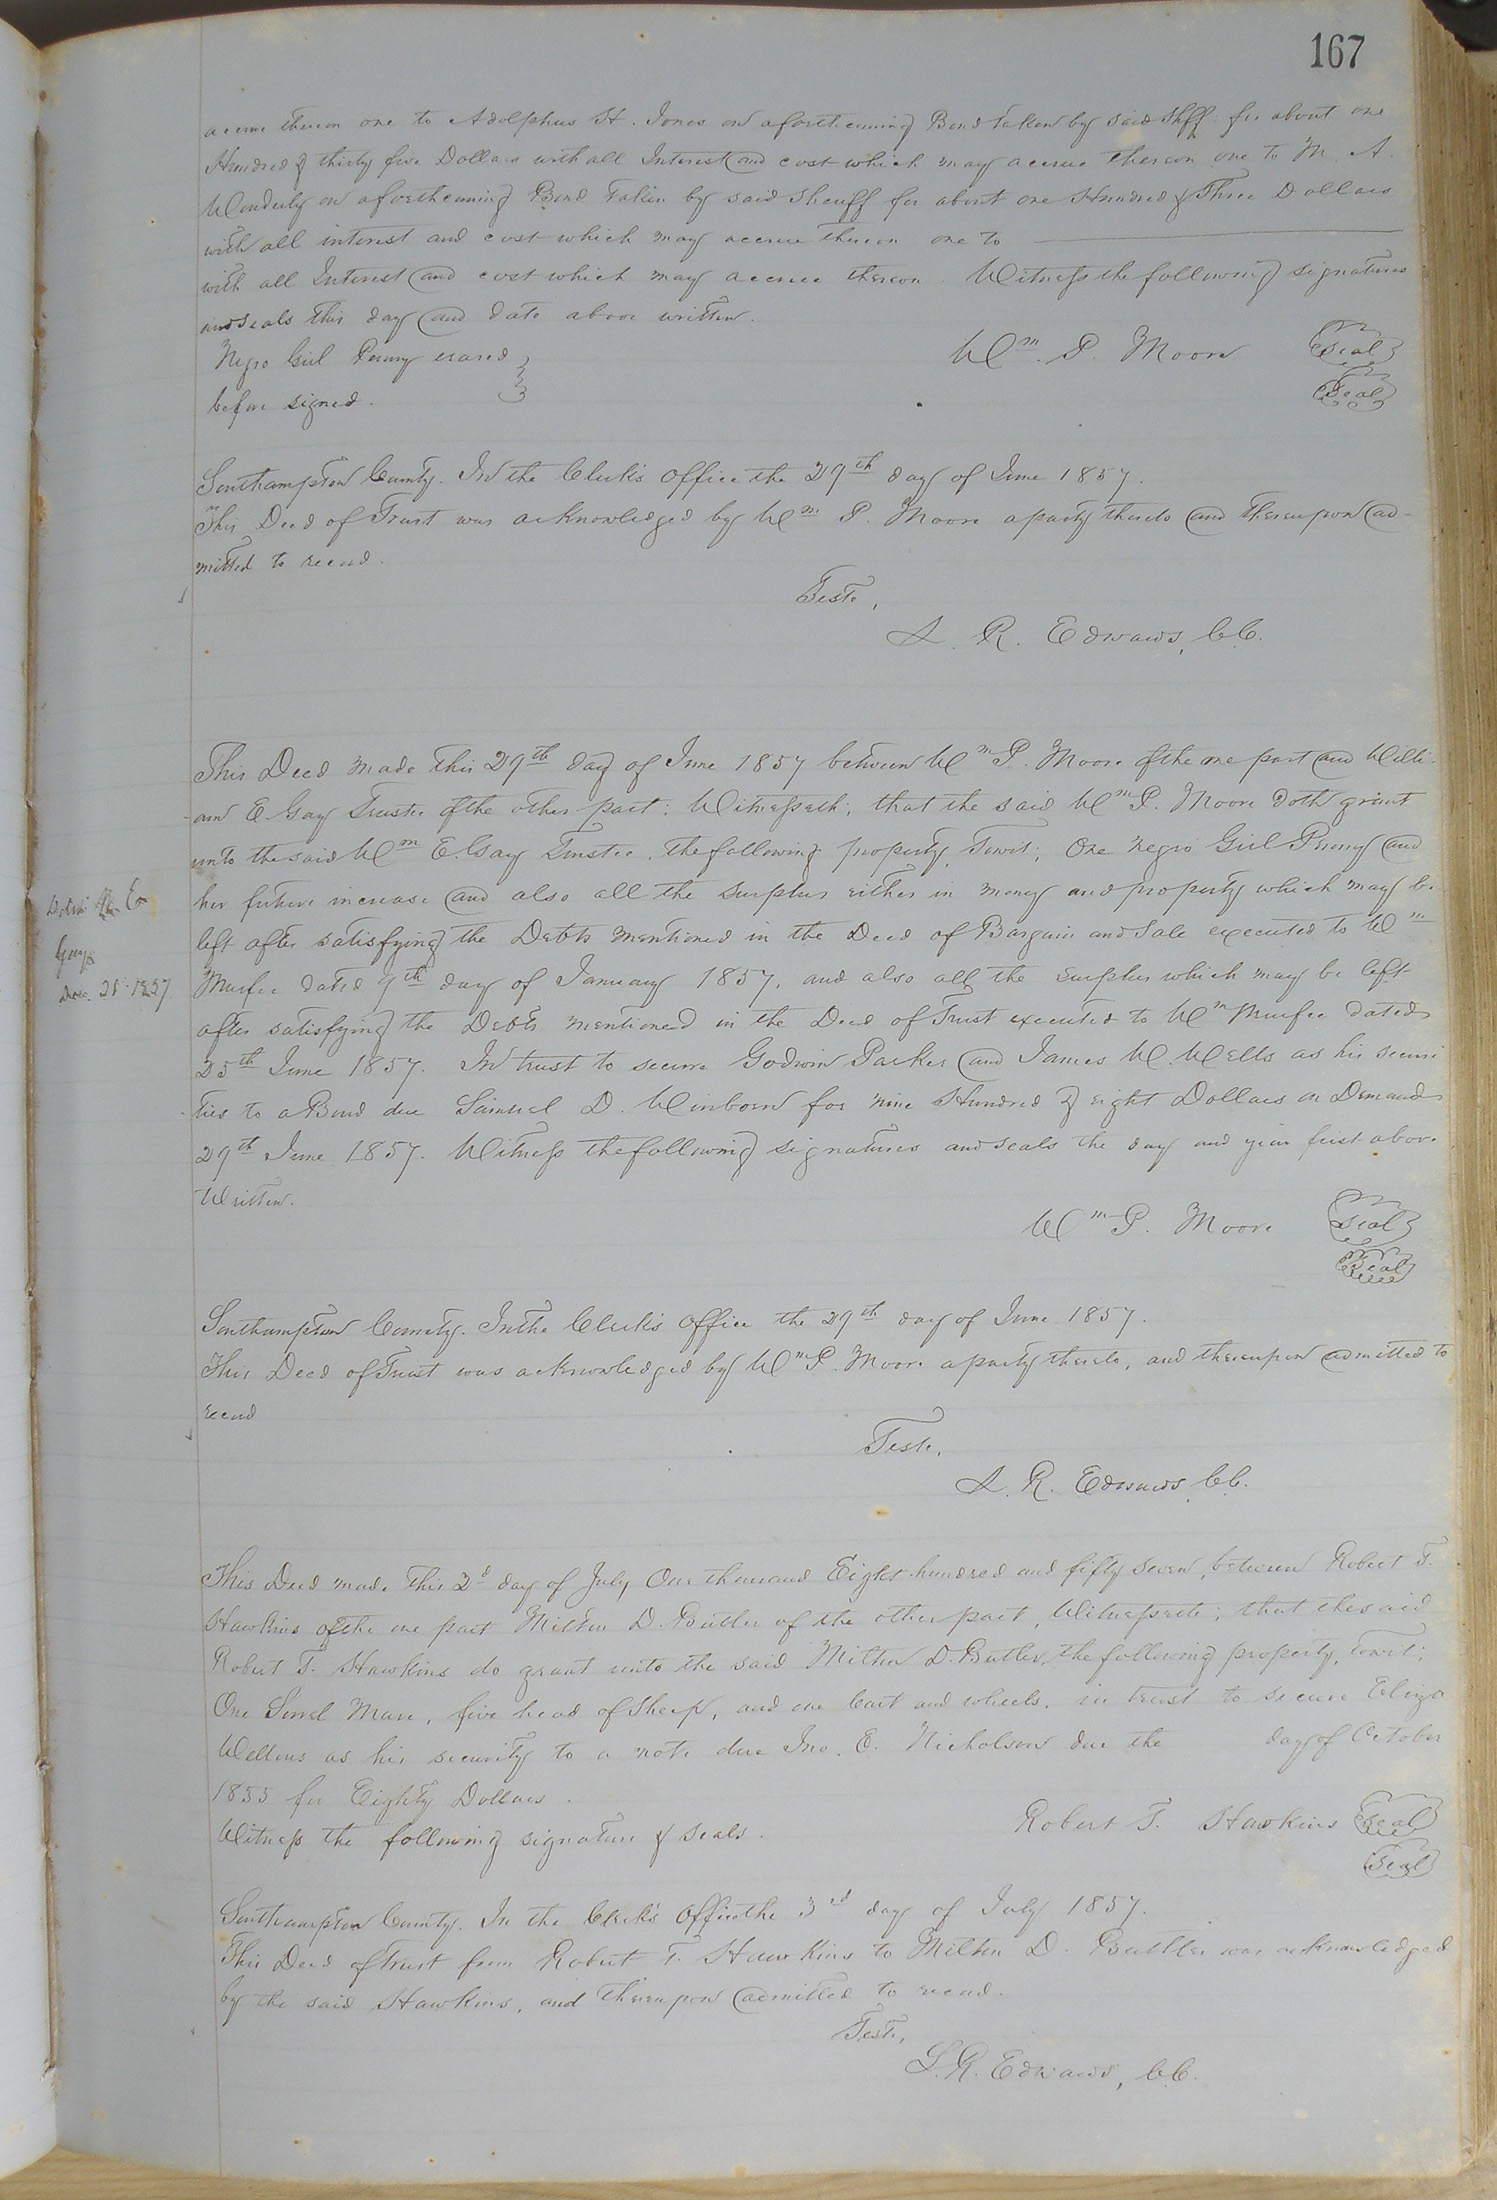 167
accrue thereon one to Adolphus H. Jones on aforthcoming Bond taken by said Shff. for about one
Hundred & thirty five Dollars with all Interest and cost which may accrue thereon one to M. A.
Wonderly on aforthcoming Bond Taken by said Sheriff for about one Hundred & Three Dollars
with all interest and cost which may accrue thereon one to
with all Interest and cost which may accrue thereon. Witness the following signatures
and seals this day and date above written.
Negro Girl Penny erased
before signed.
Wm. P. Moore Seal
Seal
Southampton County. In the Clerk's Office the 29th day of June 1857.
This Deed of Trust was acknowledged by Wm P. Moore a party thereto and thereupon ad-
mitted to record.
Teste,
L. R. Edwards, C.C.
This Deed made this 29th day of June 1857 between Wm P. Moore of the one part and Willi-
am E. Gay Trustee of the other part: Witnesseth; that the said Wm P. Moore doth grant
unto the said Wm E. Gay Trustee, the following property, Towit; One negro Girl Penny and
her future increase and also all the surplus either in money and property which may be
left after satisfying the Debts mentioned in the Deed of Bargain and Sale executed to Wm
Murfee dated 9th day of January 1857, and also all the surplus which may be left
after satisfying the Debts mentioned in the Deed of Trust executed to Wm Murfee dated
25th June 1857. In trust to secure Godwin Parker and James W. Wells as his securi
ties to a Bond due Samuel D. Winborn for nine Hundred & eight Dollars on Demand
29th June 1857. Witness the following signatures and seals the day and year first above
Written.
Gay
Dec. 21 1857
Wm P. Moore Seal
Seal
Southampton County. In the Clerk's Office the 29th day of June 1857.
This Deed of Trust was acknowledged by Wm P. Moore a party thereto, and thereupon admitted to
record
Teste,
L. R. Edwards, C.C.
This Deed made this 2d day of July One thousand Eight hundred and fifty seven, between Robert T.
Hawkins of the one part Milton D. Butler of the other part, Witnesseth; that the said
Robert T. Hawkins do grant unto the said Milton D. Butler, the following property, towit;
One Sorrel Mare, five head of Sheep, and one Cart and wheels, in trust to secure Eliza
Wellons as his security to a note due Jno. E. Nicholson due the day of October
1855 for Eighty Dollars.
Witness the following signature & seals.
Robert T. Hawkins Seal
Seal
Southampton County. In the Clerk's Office the 3rd day of July 1857.
This Deed of Trust from Robert T. Hawkins to Milton D. Buttler was acknowledged
by the said Hawkins, and thereupon admitted to record.
Teste,
L. R. Edwards, C.C.